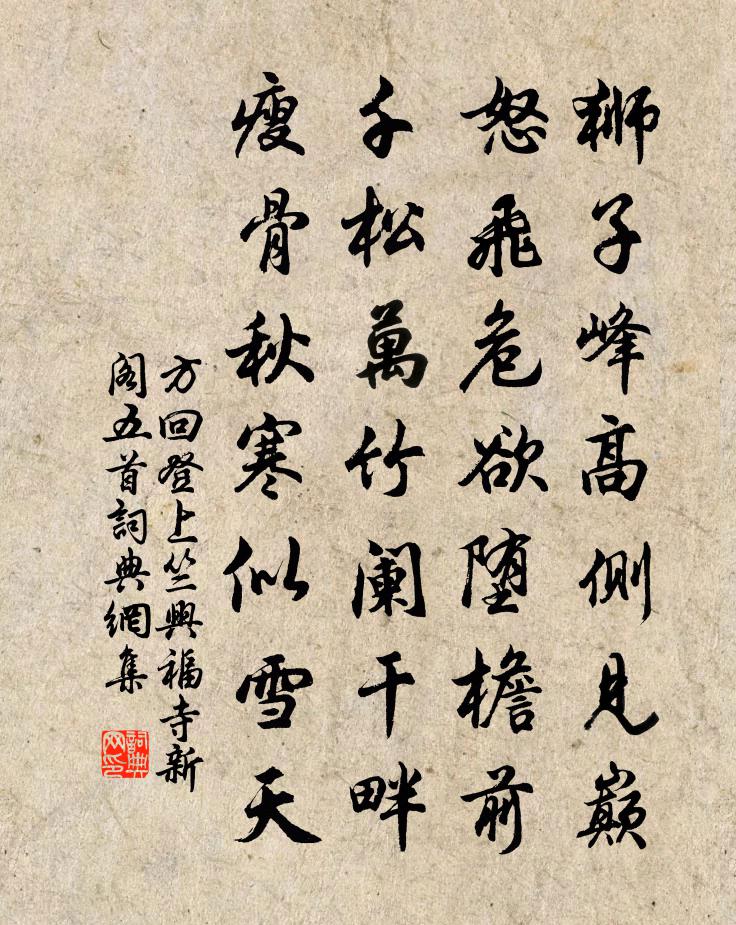 狮子峰高侧見巔
怒飛危欲堕檐前
千松萬竹阑干畔
瘦骨秋寒似雪天
方回登上竺興福寺新
阁五首詞典網集
詞典网印